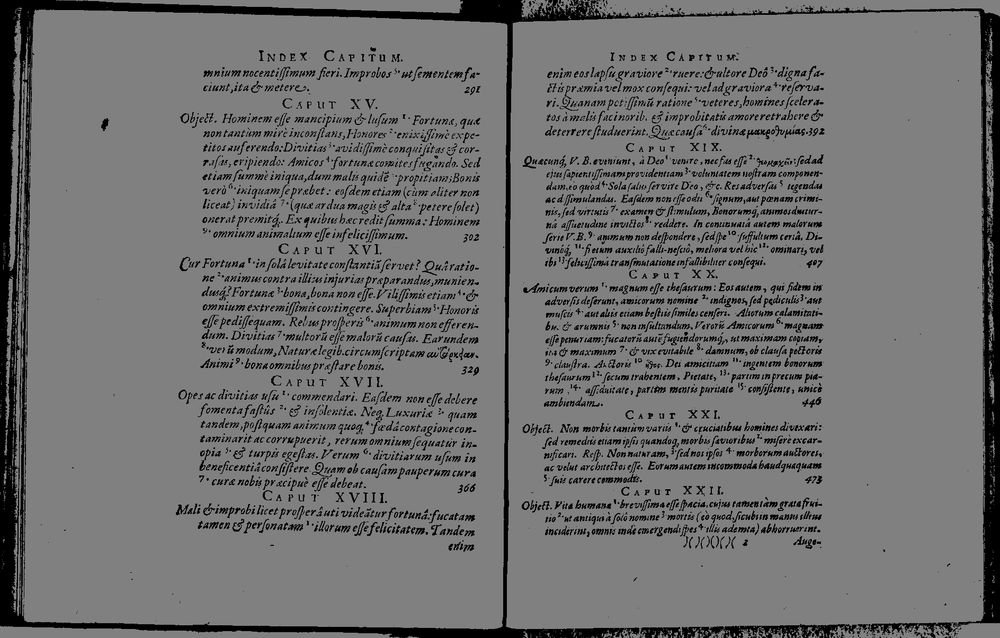 INDEX CAPITUM.
mnium nocentissimum fieri. Improbos 5. ut sementem fa-
ciunt, ita & metere. 291
CAPUT XV.
Object. Hominem esse mancipium & lusum 1. Fortunæ, quæ
non tantùm mirè inconstans, Honores 2. enixissimè expe-
titos auferendo: Divitias 3. avidissimè conquisitas & cor-
rasas, eripiendo: Amicos 4. fortunæ comites fugando. Sed
etiam summè iniqua, dum malis quidē 5. propitiam; Bonis
verò 6. iniquam se præbet: eosdem etiam (cùm aliter non
liceat) invidiâ 7. (quæ ardua magis & alta 8. petere solet)
onerat premitq́;. Ex quibus hæc redit summa: Hominem
9. omnium animalium esse infelicissimum. 302
CAPUT XVI.
Cur Fortuna 1. in solâ levitate constantiā servet? Quâ ratio-
ne 2. animus contra illius injurias præparandus, munien-
dusq́;? Fortunæ 3. bona, bona non esse. Vilissimis etiam 4. &
omnium extremissimis contingere. Superbiam 5. Honoris
esse pedissequam. Rebus prosperis 6. animum non efferen-
dum. Divitias 7. multorū esse malorū causas. Earundem
8. verū modum, Naturæ legib. circumscriptam αὐτάρκειαν.
Animi 9. bona omnibus præstare bonis. 329
CAPUT XVII.
Opes ac divitias usu 1. commendari. Easdem non esse debere
fomenta fastûs 2. & insolentiæ. Neq́, Luxuriæ 3. quam
tandem, postquam animum quoq́, 4. fœdâ contagione con-
taminarit ac corrupuerit, rerum omnium sequatur in-
opia 5. & turpis egestas. Verum 6. divitiarum usum in
beneficentiâ consistere. Quam ob causam pauperum cura
7. curæ nobis præcipuè esse debeat. 366
CAPUT XVIII.
Mali & improbi licet prosperâ uti videātur fortunâ: fucatam
tamen & personatam 1. illorum esse felicitatem. Tandem
enim
INDEX CAPITUM.
enim eos lapsu graviore 2. ruere: & ultore Deô 3. digna fa-
ctis præmia vel mox consequi: vel ad graviora 4. reserva-
ri. Quanam potissimū ratione 5. veteres, homines scelera-
tos à malis facinorib. & improbitatis amore retrahere &
deterrere studuerint. Quæ causa 6. divinæ μακροθυμίας. 392
CAPUT XIX.
Quæcunq́, V. B. eveniunt, à Deo 1. venire, nec fas esse 2. : sed ad
ejus sapientissimam providentiam 3. voluntatem nostram componen-
dam, eo quòd 4. Sola salus servire Deo, &c. Res adversas 5. tegendas
ac dissimulandas. Easdem non esse odii 6. signum, aut pœnam crimi-
nis, sed virtutis 7. examen & stimulum, Bonorumq́, animos diutur-
nâ assuetudine invictos 8. reddere. In continuatâ autem malorum
serie V. B. 9. animum non despondere, sed spe 10. suffultum certâ, Di-
vinóq́, 11. fretum auxiliô falli-nesciô, meliora vel hîc 12. ominari, vel
ibi 13. felicissimâ transmutatione infallibiliter consequi. 407
CAPUT XX.
Amicum verum 1. magnum esse thesaurum: Eos autem, qui fidem in
adversis deserunt, amicorum nomine 2. indignos, sed pediculis 3. aut
muscis 4. aut aliis etiam bestiis similes censeri. Aliorum calamitati-
bus & ærumnis 5. non insultandum. Verorū Amicorum 6. magnam
esse penuriam: fucatorū autē fugiendorumq́, ut maximam copiam,
ita & maximum 7. & vix evitabile 8. damnum, ob clausa pectoris
9. claustra. Auctoris 10. . Dei amicitiam 11. ingentem bonorum
thesaurum 12. secum trahentem, Pietate, 13. partim in precum pia-
rum, 14. assiduitate, partim mentis puritate 15. consistente, unicè
ambiendam. 446
CAPUT XXI.
Object. Non morbis tantùm variis 1. & cruciatibus homines divexari:
sed remediis etiam ipsis quandoq́, morbis sævioribus 2. miserè excar-
nificari. Resp. Non naturam, 3. sed nos ipsos 4. morborum auctores,
ac velut architectos esse. Eorum autem incommoda haudquaquam
5. suis carere commodis. 473
CAPUT XXII.
Object. Vita humanæ 1. brevissima esse spacia, cujus tamen tàm grata frui-
tio 2. ut antiqui à solô nomine 3. mortis (eò quod, sicubi in manus illius
inciderint, omnis inde emergendi spes 4. illis ademta) abhorruerint.
)( )( )( )( )( 2 Auge-